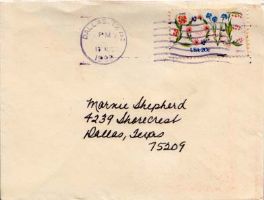 DALLAS, TX
PM
USA 20c
Marnie Shepherd
4239 Shorecrest
Dallas, Texas
75209